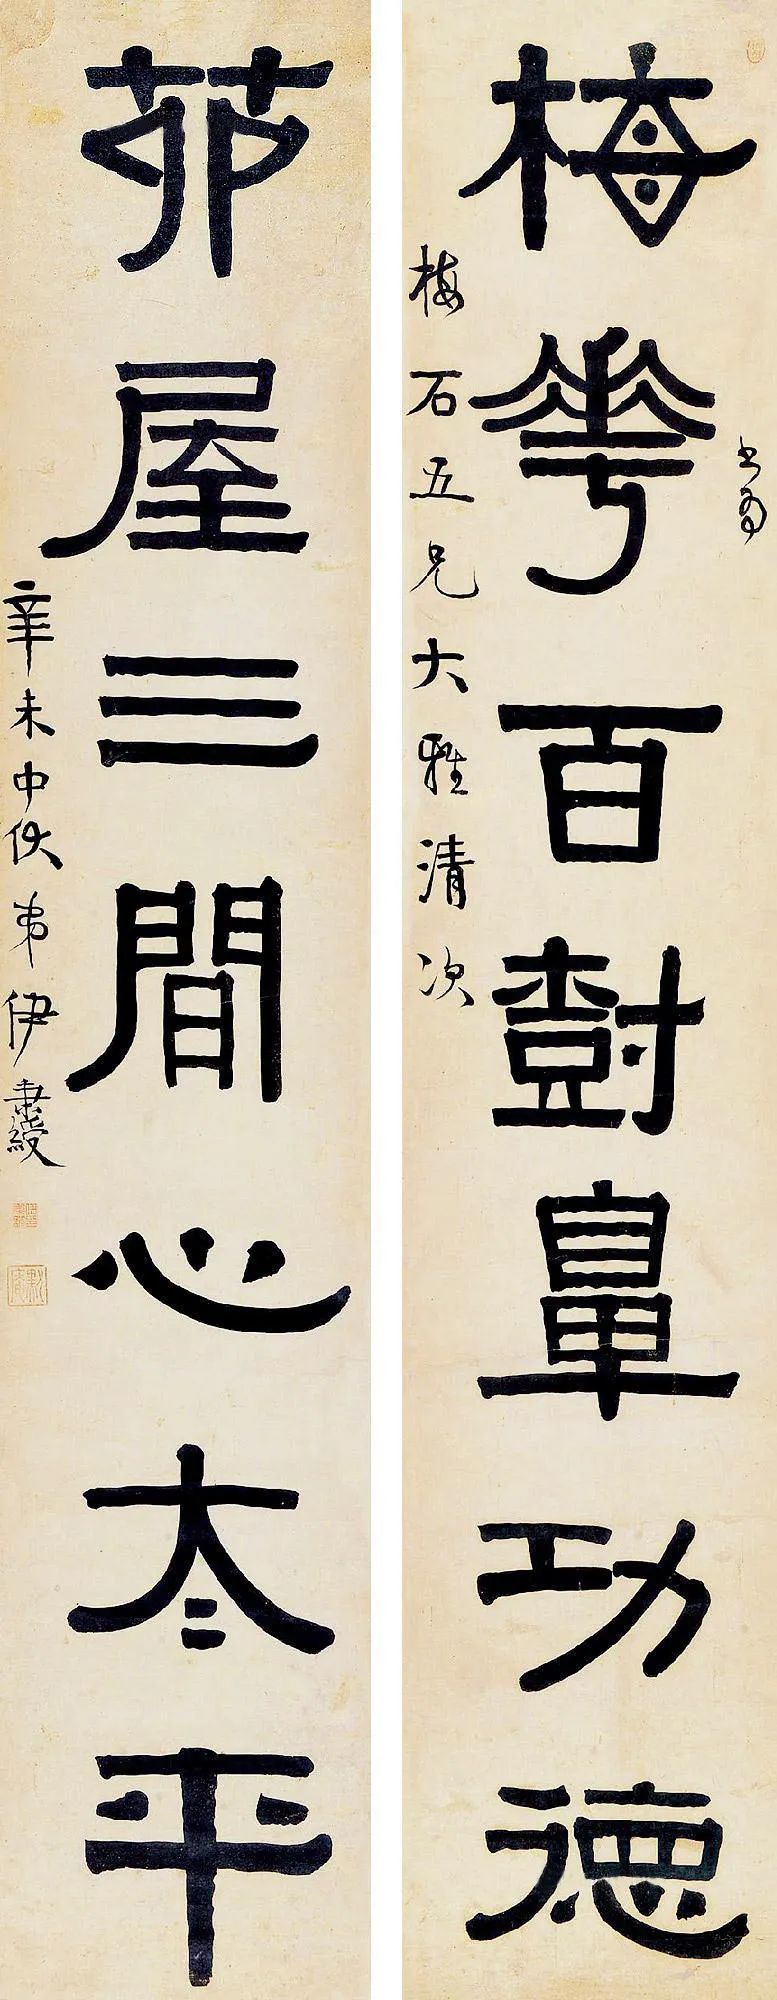 梅華百樹鼻功德
書為
梅石五兄大雅清次
茆屋三間心太平
辛未中伏弟伊秉綬